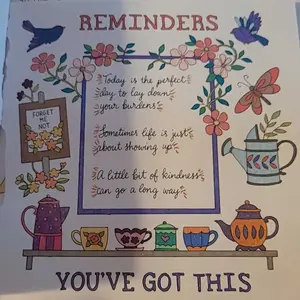 REMINDERS
Today is the perfect
day to lay down
your burdens
Sometimes life is just
about showing up
A little bit of kindness
can go a long way
FORGET
ME
NOT
YOU'VE GOT THIS